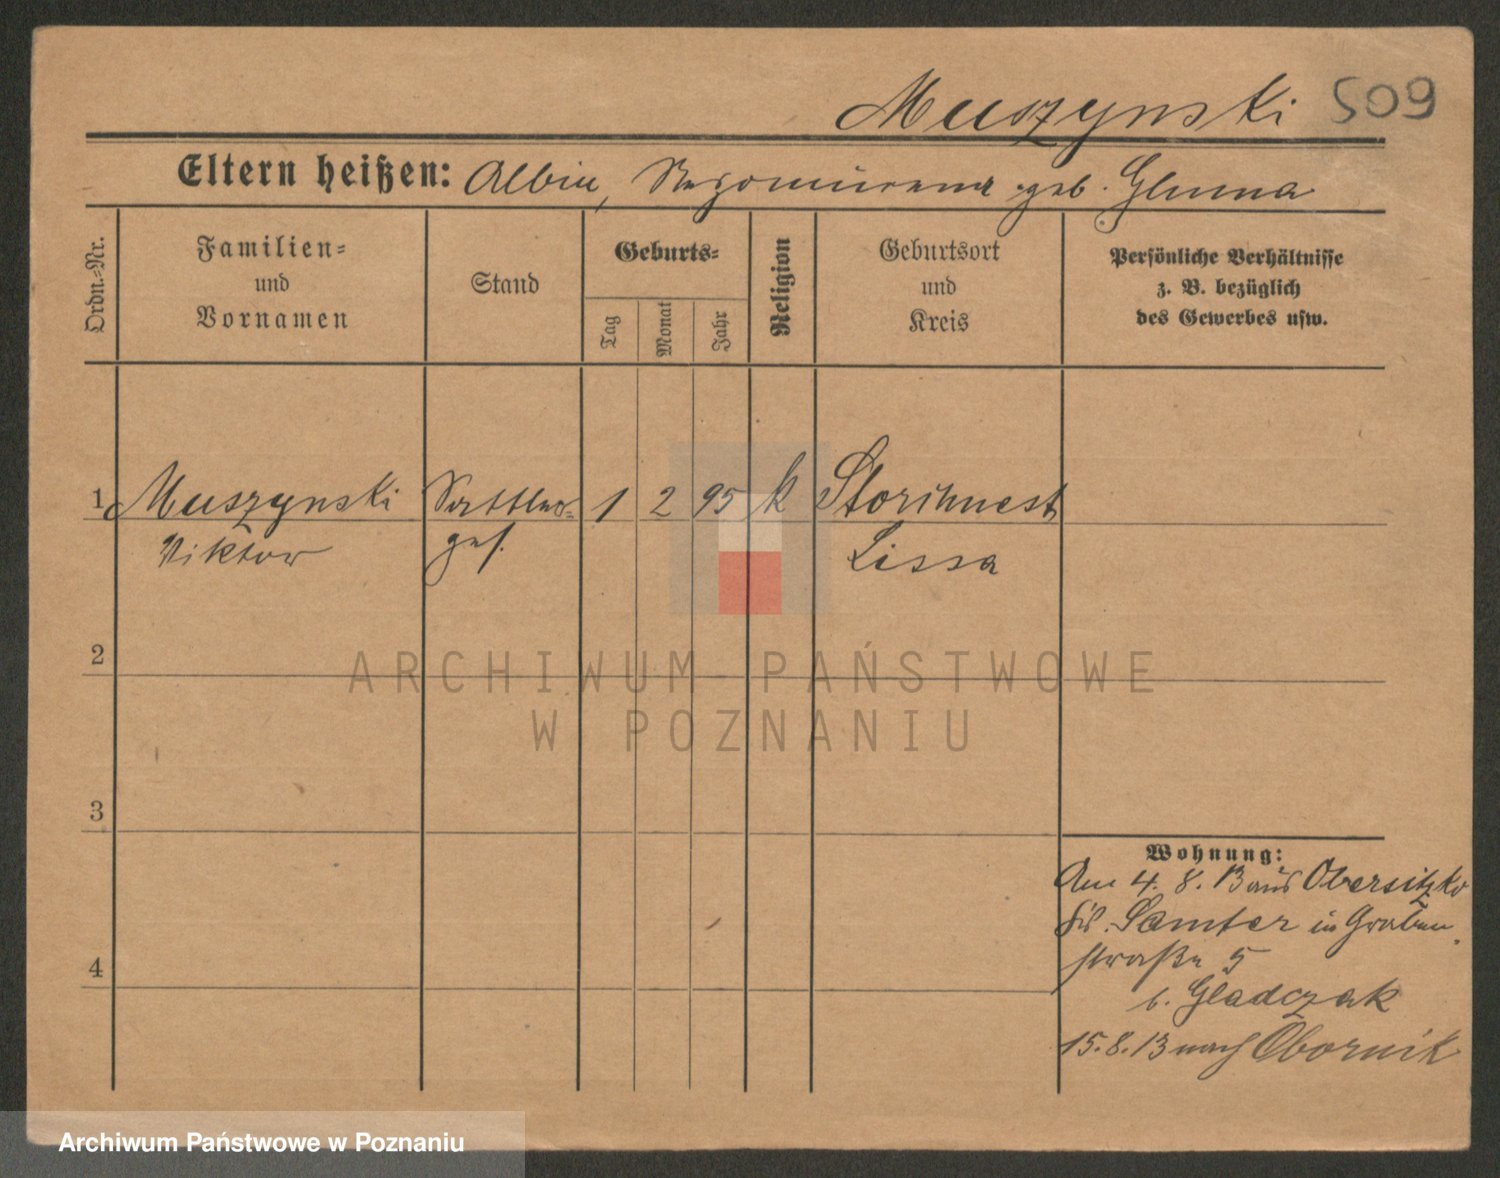 Muszynski 509
Eltern heißen: Albin, Nepomucena geb. Glinna
Ordn.=Nr.
Familien=
und
Vornamen
Stand
Geburts=
Tag
Monat
Jahr
Religion
Geburtsort
und
Kreis
Persönliche Verhältnisse
z. B. bezüglich
des Gewerbes usw.
1 Muszynski Sattler= 1 2 95 k Storchnest
Viktor ges. Lissa
2
3
4
Wohnung:
Am 4. 8. 13 aus Obersitzko
Samter in Graben
straße 5
b. Gladczak
15. 8. 13 nach Obornik
ARCHIWUM PAŃSTWOWE
W POZNANIU
Archiwum Państwowe w Poznaniu